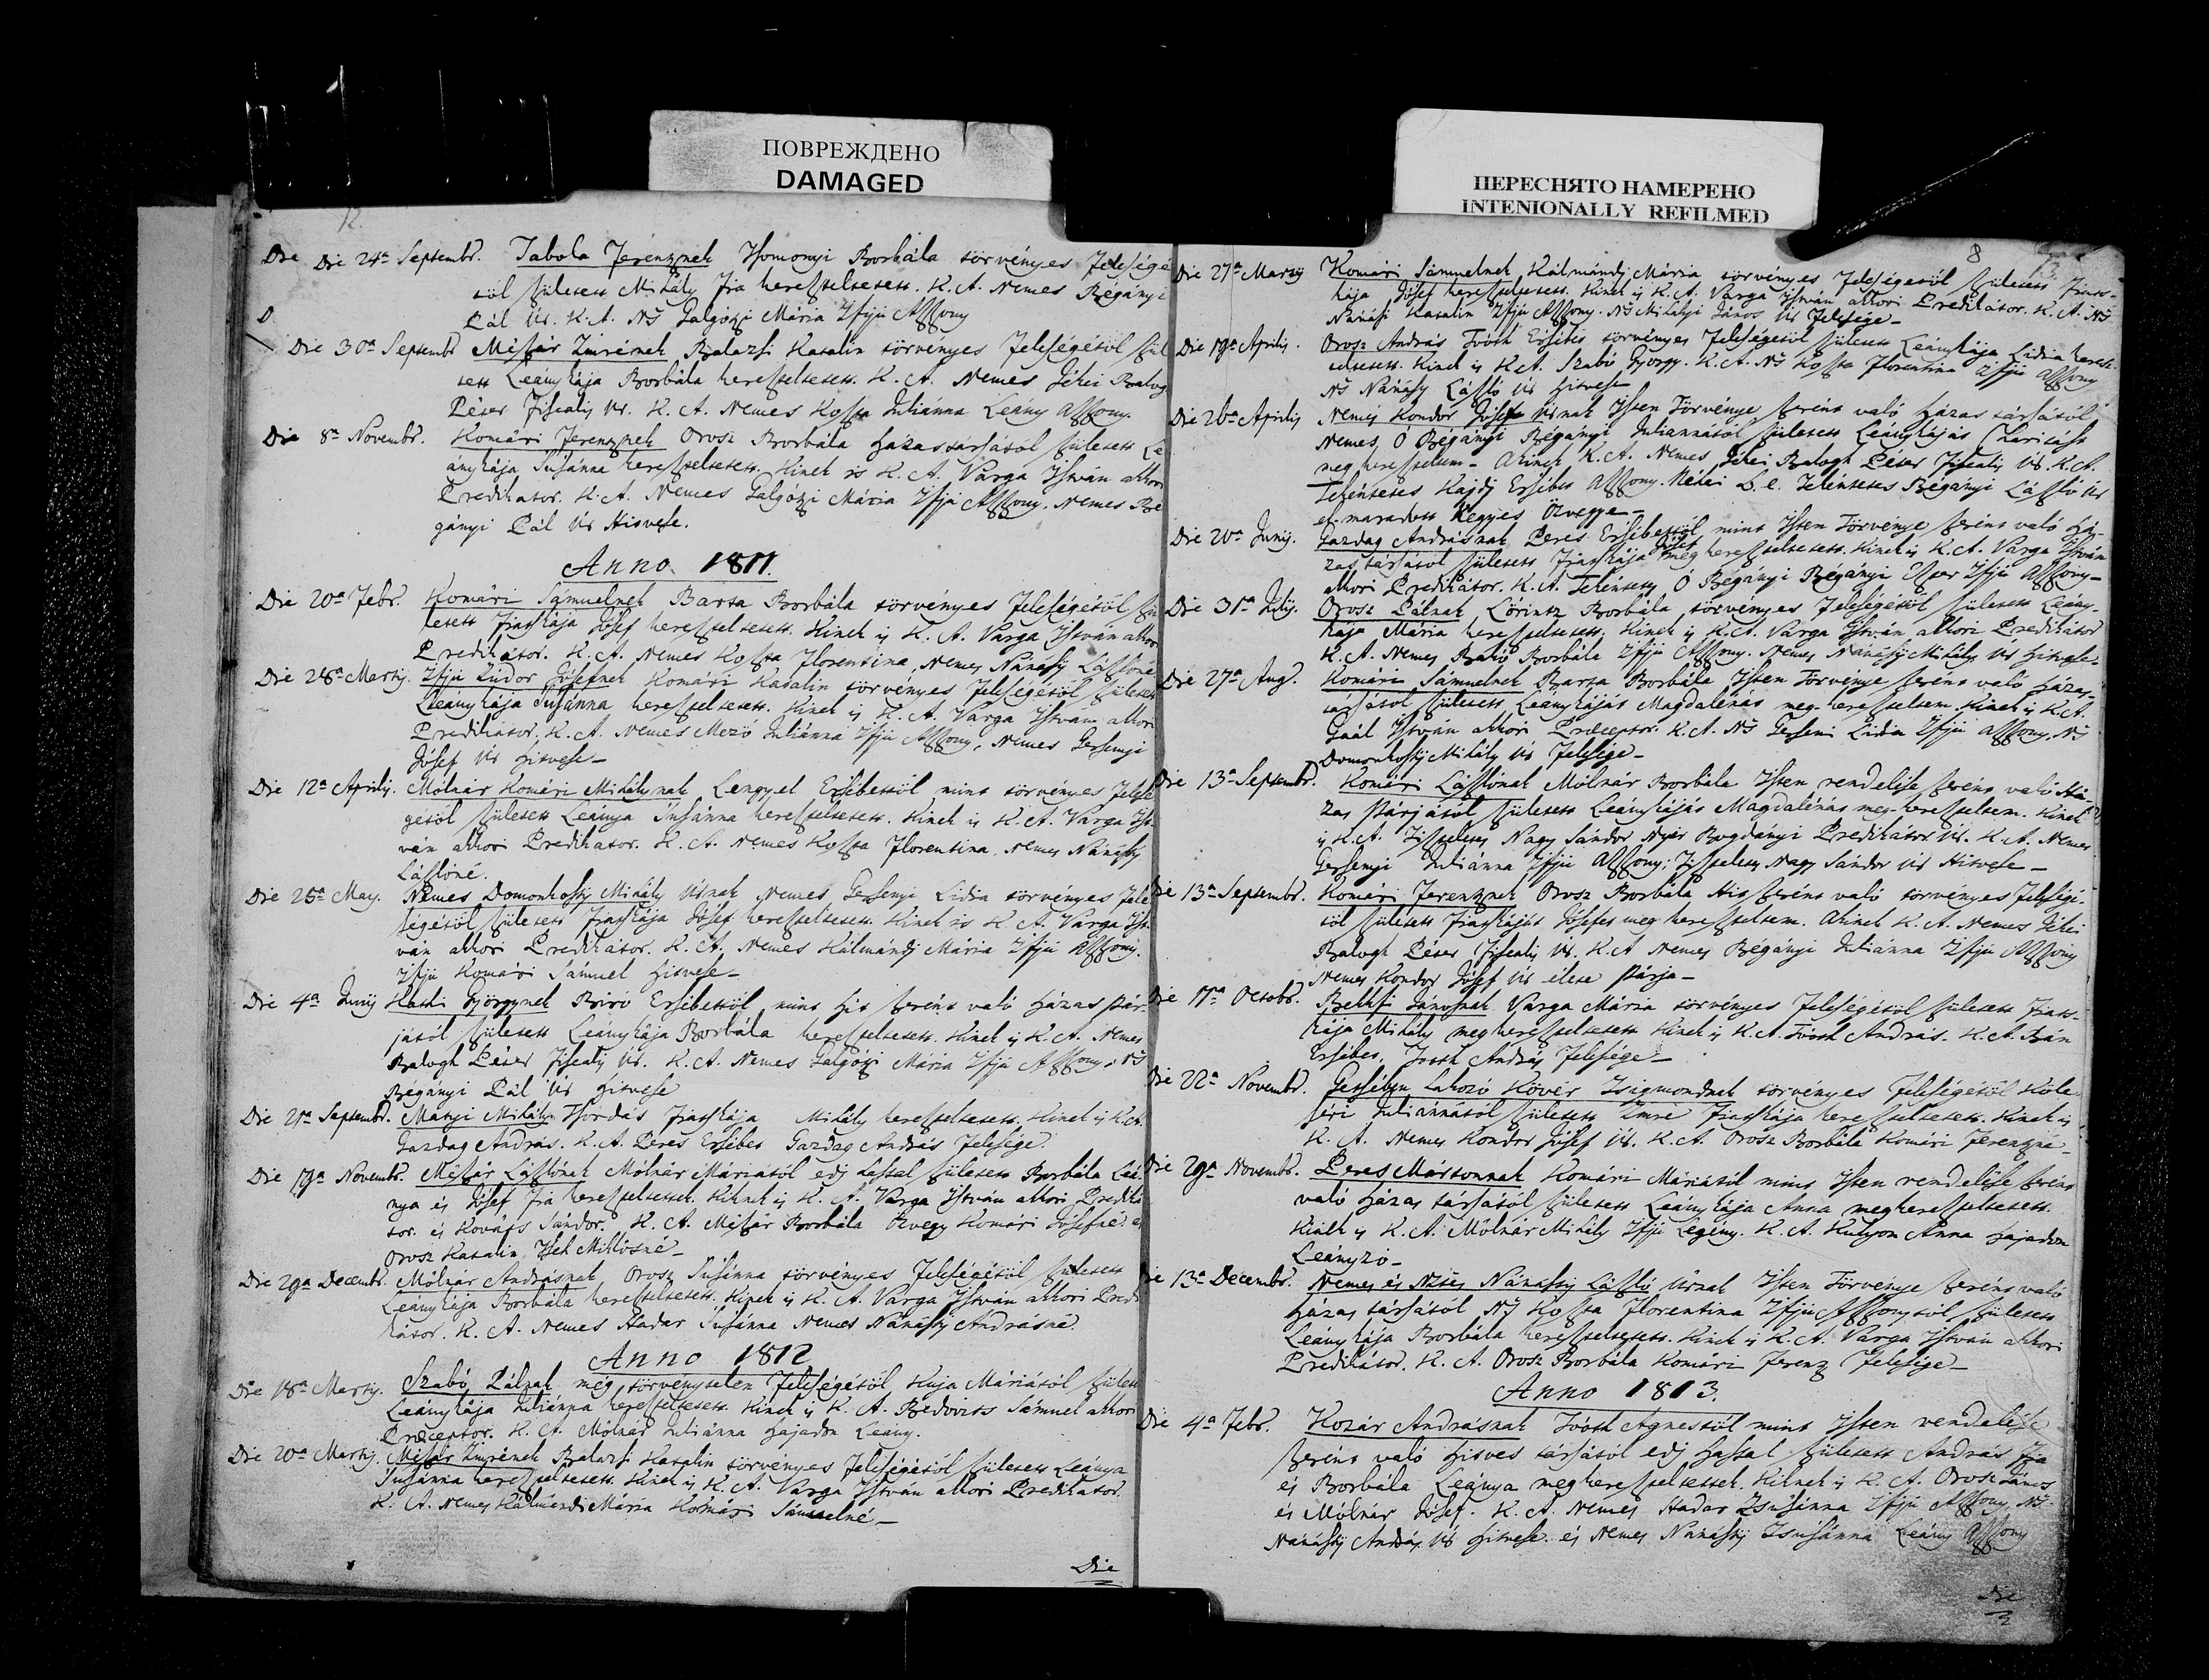 ПОВРЕЖДЕНО
DAMAGED
ПЕРЕСНЯТО НАМЕРЕНО
INTENIONALLY REFILMED
12
Die Die 24a Septembr. Tabola Ferentznek Homonyi Borbála törvényes Feleségé
től született Mihály Fia kereszteltetett. K. A. Nemes Bégányi
Pál Úr. K. A. Ns Galgózi Mária Ifjú Asszony
Die 30a Septembr Mészár Imrének Balazsi Katalin törvényes Feleségétől szül
tett Leánykája Borbála kereszteltetett. K. A. Nemes Jékei Balog
Péter Fiscalis Úr. K. A. Nemes Koszta Juliánna Leány Asszony.
Die 8a Novembr. Komári Ferentznek Orosz Borbála Házastársától született Le
ánykája Susánna kereszteltetett. Kinek is K. A. Varga István akkori
Predikátor. K. A. Nemes Galgózi Mária Ifjú Asszony. Nemes Bé
gányi Pál Úr Hitvese.
Anno 1811.
Die 20a Febr. Komári Sámuelnek Barta Borbála törvényes Feleségétől szü
letett Fiatskája Jósef kereszteltetett. Kinek is K. A. Varga István akkori
Predikátor. K. A. Nemes Koszta Florentina, Nemes Nánássy Lászlóné
Die 28a Martij. Ifjú Sidor Jósefnek Komári Katalin törvényes Feleségétől született
Leánykája Susánna kereszteltetett. Kinek is K. A. Varga István akkori
Predikátor. K. A. Nemes Mező Juliánna Ifjú Asszony, Nemes Getsenyi
Jósef Úr Hitvese
Die 12a Aprilij. Mólnár Komári Mihálynak Lengyel Ersébettől mint törvényes Felesé
gétől született Leánya Susánna kereszteltetett. Kinek is K. A. Varga Ist
ván akkori Predikátor. K. A. Nemes Koszta Florentina, Nemes Nánássy
Lászlóné.
Die 25a May. Nemes Domonkossy Mihály Úrnak Nemes Getsenyi Lidia törvényes Fele
ségétől született Fiatskája Jósef kereszteltetett. Kinek is K. A. Varga Ist
ván akkori Predikátor. K. A. Nemes Kálmándj Mária Ifjú Asszony.
Ifjú Komári Sámuel Hitvese
Die 4a Junij Györgynek Biró Ersébettől mint Hit szerént való Házas pár
jától született Leánykája Borbála kereszteltetett. Kinek is K. A. Nemes
Balogh Péter Fiscalis Úr. K. A. Nemes Galgózi Mária Ifjú Asszony; Ns
Bégányi Pál Úr Hitvese
Die 21a Septembr. Mányi Mihály Fiatskája Mihály kereszteltetett. Kinek is K. A.
Gazdag András. K. A. Peres Ersébet Gazdag András felesége.
Die 19a Novembr. Mészár Lászlónak Mólnár Máriától edj hassal született Borbála Leá
nya és Jósef Fia kereszteltettek. Kiknek is K. A. Varga István akkori Prediká
tor. és Kováts Sándor. K. A. Mészár Borbála Özvegy Komári Jósefné. és
Orosz Katalin Miklósné
Die 29a Decembr. Mólnár Andrásnak Orosz Susánna törvényes Feleségétől született
Leánykája Borbála kereszteltetett. Kinek is K. A. Varga István akkori Predi
kátor. K. A. Nemes Hadar Susánna Nemes Nánássy Andrásné.
Anno 1812
Die 18a Martij. Szabó Pálnak még törvénytelen Feleségétől Huja Máriától született
Leánykája Juliánna kereszteltetett. Kinek is K. A. Sámuel akkori
Præceptor. K. A. Mólnár Juliánna Hajadon Leány.
Die 20a Martij. Mészár Imrének Balazsi Katalin törvényes Feleségétől született Leánya
Susánna kereszteltetett. Kinek is K. A. Varga István akkori Predikátor.
K. A. Nemes Kálmándi Mária Komári Sámuelné
Die
8
Die 27a Martij Komári Sámuelnek Kálmándj Mária törvényes Feleségétől született Fiats
kája Jósef kereszteltetett. Kinek is K. A. Varga István akkori Predikátor. K. A. Ns
Nánási Katalin Ifjú Asszony. Ns Mihályi János Úr Felesége
Die 19a Aprilis. Orosz András Tóóth Ersébet törvényes Feleségétől született Leánykája Lidia keresz
teltetett. Kinek is K. A. Szabó György. K. A. Ns Koszta Florentina Ifjú Asszony
Ns Nánássy László Úr Hitvese
Die 26a Aprilis Nemes Kondor Jósef Úrnak Isten Törvénye szerént való Házas társától
Nemes Ó Bégányi Bégányi Juliannától született Leánykáját Charitást
meg kereszteltem. Akinek K. A. Nemes Jékei Balogh Péter Fiscalis Úr. K. A.
Tekéntetes Kajdj Ersébet Asszony. Tekéntetes Bégányi László Úr
el maradott Kegyes Özvegye
Die 20a Junij. Gazdag Andrásnak Peres Ersébettől mint Isten Törvénye szerént való Há
zastársától született Fiatskája Jósef meg kereszteltetett. Kinek is K. A. Varga István
akkori Predikátor. K. A. Tekéntetes Ó Bégányi Bégányi Eszter Ifjú Asszony
Die 31a Julij. Orosz Pálnak Lőrintz Borbála törvényes Feleségétől született Leány
kája Mária kereszteltetett. Kinek is K. A. Varga István akkori Predikátor
K. A. Nemes Borbála Ifjú Asszony. Nemes Nánássy Mihály Úr Hitvese
Die 27a Aug. Komári Sámuelnek Barta Borbála Isten Törvénye szerént való Házas
társától született Leánykáját Magdalénát meg kereszteltem. Kinek is K. A.
Gaál István akkori Præceptor. K. A. Ns Getsenyi Lidia Ifjú Asszony, Ns
Domonkossy Mihály Úr Felesége
Die 13a Septembr. Komári Lászlónak Mólnár Borbála Isten rendelése szerént való Há
zas Párjától született Leánykáját Magdalénát meg kereszteltem. Kinek
is K. A. Tiszteletes Nagy Sándor Nyár Bogdányi Predikátor Úr. K. A. Nemes
Getsenyi Juliánna Ifjú Asszony; Tiszteletes Nagy Sándor Úr Hitvese
Die 13a Septembr. Komári Ferentznek Orosz Borbála Hit szerént való törvényes Feleségé
től született Fiatskáját Jósefet meg kereszteltem. Akinek K. A. Nemes Jékei
Balogh Péter Fiscalis Úr. K. A Nemes Bégányi Juliánna Ifjú Asszony
Nemes Kondor Jósef Úr élete Párja
Die 11a Octobr. Jánosnak Varga Mária törvényes Feleségétől született Fiats
kája Mihály meg kereszteltetett Kinek is K. A. Tóóth András. K. A. Bán
Ersébet, Tooth András Felesége
Die 22a Novembr. Lakozó Kövér Zsigmondnak törvényes Feleségétől Köle
séri Juliánnától született Imre Fiatskája kereszteltetett. Kinek is
K. A. Nemes Kondor Jósef Úr. K. A. Orosz Borbála Komári Ferentzné
Die 29a Novembr. Peres Mártonnak Komári Máriától mint Isten rendelése szerént
való Házas társától született Leánykája Anna meg kereszteltetett.
Kinek is K. A. Mólnár Mihály Ifjú Legény. K. A. Anna Hajadon
Leányzó
Die 13a Decembr. Nemes és Nzetes Nánássy László Úrnak Isten Törvénye szerént való
Házas társától Ns Koszta Florentina Ifjú Asszonytól született
Leánykája Borbála kereszteltetett. Kinek is K. A. Varga István akkori
Predikátor. K. A. Orosz Borbála Komári Ferentz Felesége
Anno 1813.
Die 4a Febr. Kozár Andrásnak Tóóth Agnestől mint Isten rendelése
szerént való Hitves társától edj hassal született András Fia
és Borbála Leánya meg kereszteltettek. Kiknek is K. A. Orosz János
és Mólnár Jósef. K. A. Nemes Hadar Zsusánna Ifjú Asszony, Ns
Nánássy András Úr Hitvese. és Nemes Nánássy Zsusánna Leány Asszony
Die